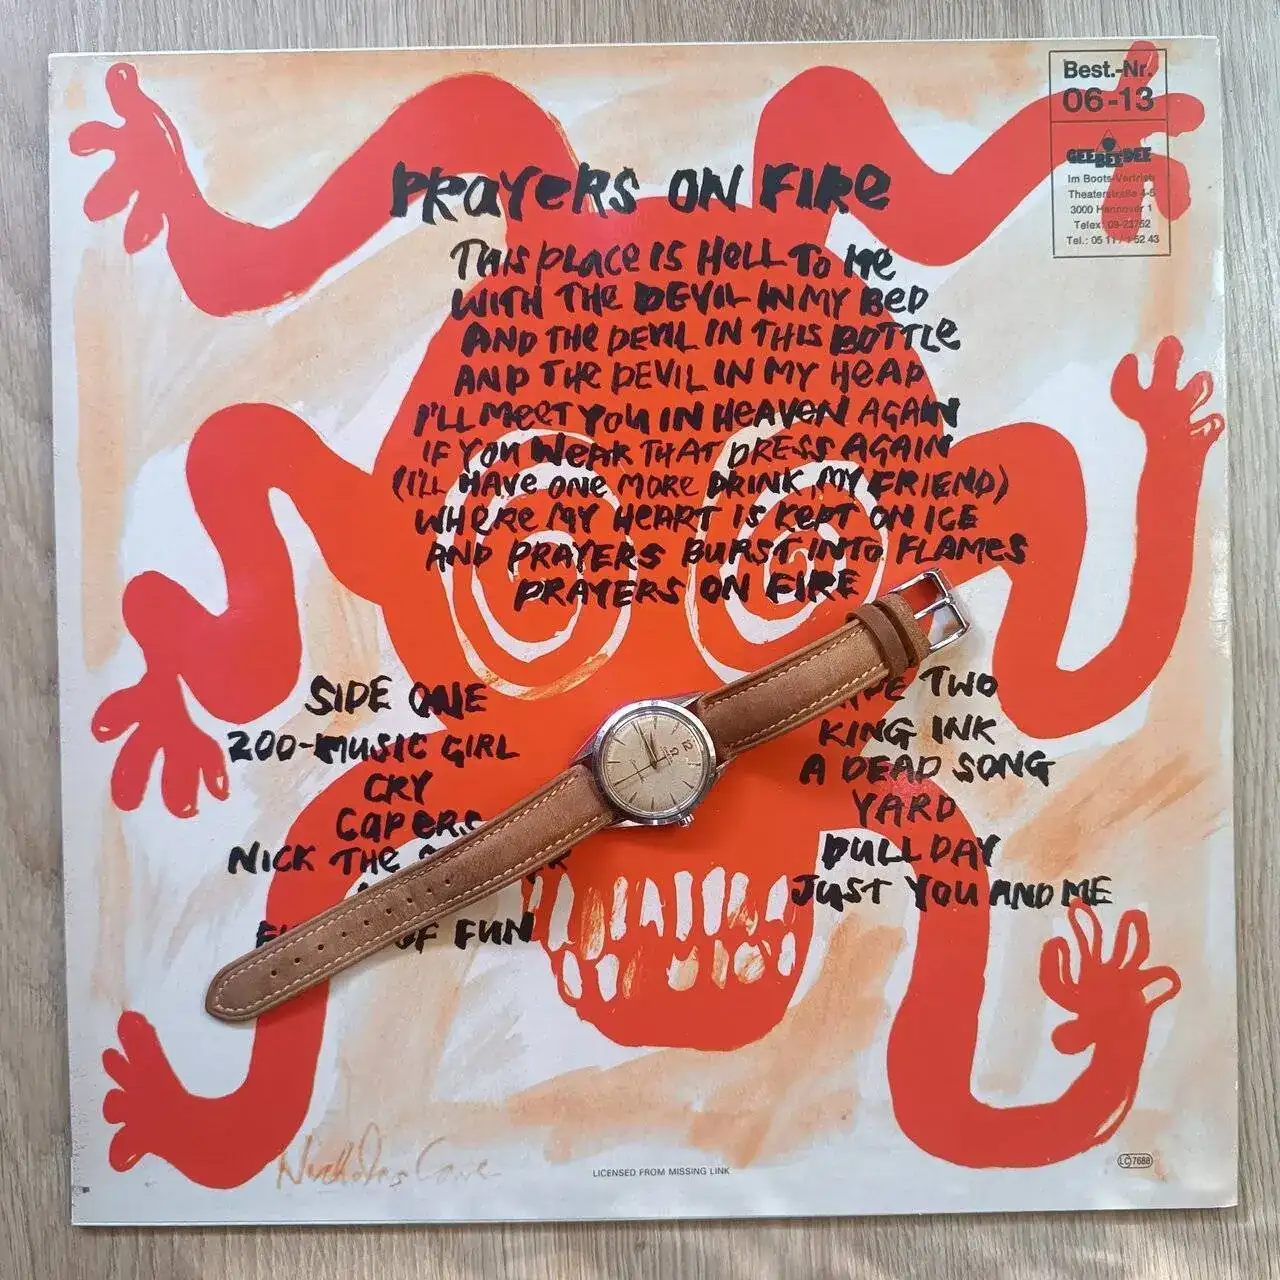 Best.-Nr.
06-13
GEEBEEDEE
Im Boots-Vertrieb
Theaterstraße 4-5
3000 Hannover 1
Telex: 09-23752
Tel.: 05 11 / 1 52 43
PRAYERS ON FIRE
THIS PLACE IS HELL TO ME
WITH THE DEVIL IN MY BED
AND THE DEVIL IN THIS BOTTLE
AND THE DEVIL IN MY HEAD
I'LL MEET YOU IN HEAVEN AGAIN
IF YOU WEAR THAT DRESS AGAIN
(I'LL HAVE ONE MORE DRINK, MY FRIEND)
WHERE MY HEART IS KEPT ON ICE
AND PRAYERS BURST INTO FLAMES
PRAYERS ON FIRE
SIDE ONE
ZOO-MUSIC GIRL
CRY
CAPERS
NICK THE
OF FUN
TWO
KING INK
A DEAD SONG
YARD
DULL DAY
JUST YOU AND ME
Nicholas Cave
LICENSED FROM MISSING LINK
LC 7688